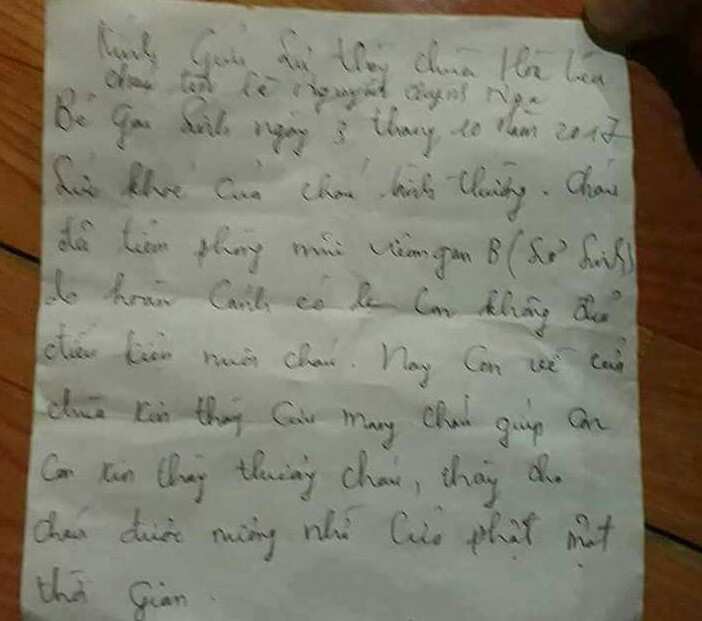 Kính Gửi Sư thầy chùa
cháu tên Lê Nguyễn Nga
Bé gái Sinh ngày 3 tháng 10 năm 2017
Sức khoẻ của cháu bình thường. Cháu
đã tiêm phòng mũi viêm gan B (Sơ Sinh)
do hoàn Cảnh có le Con không đủ
điều kiện nuôi cháu. Nay Con về cửa
chùa xin thầy Cưu mang cháu giúp con
Con xin thầy thương cháu, thầy cho
cháu được nương nhờ Cửa phật một
thời Gian.